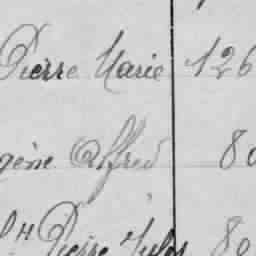 Pierre Marie 126
gène Alfred 80
Pierre Jules 80